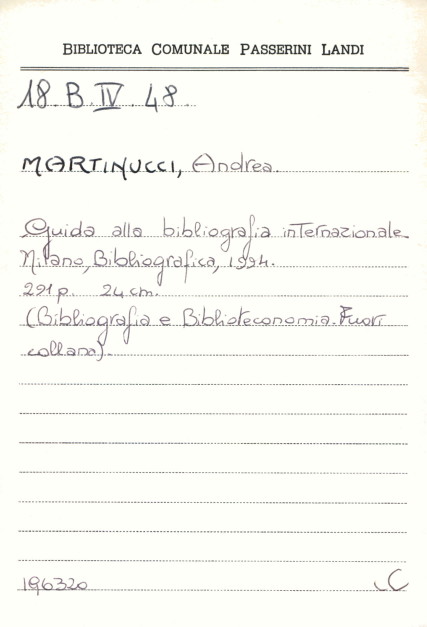 BIBLIOTECA COMUNALE PASSERINI LANDI
18 B IV 48
MARTINUCCI, Andrea
Guida alla bibliografia internazionale
Milano, Bibliografica, 1994.
291 p. 24 cm.
(Bibliografia e Biblioteconomia. Fuori
collana).
196320 C